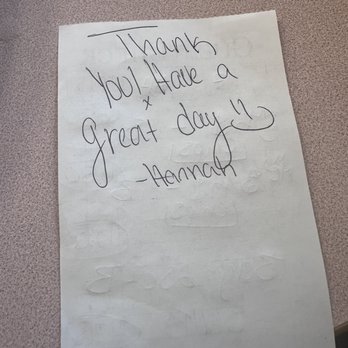 Thank
You! Have a
great day :)
-Hannah